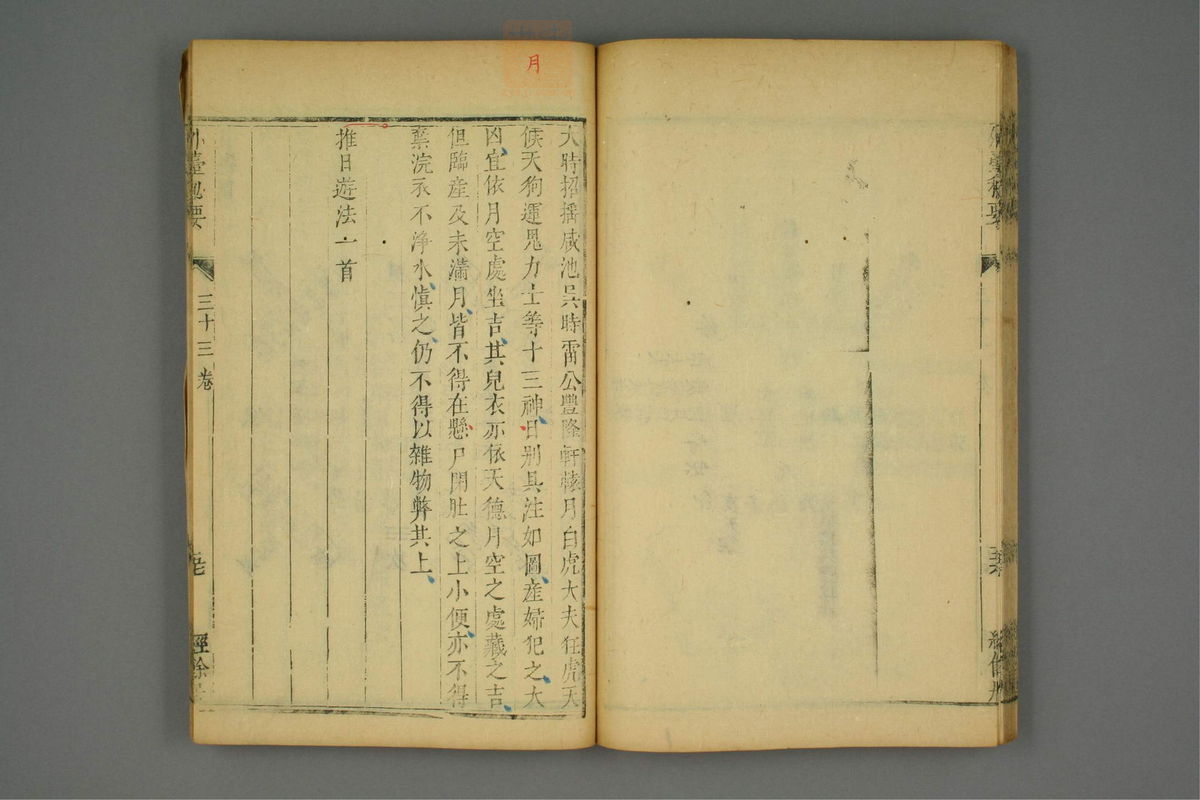 月
大時招摇咸池吳時雷公豐隆軒轅月白虎大夫狂虎天
候天狗運鬼力士等十三神日别具注如圖産婦犯之大
凶宜依月空處坐吉其兒衣亦依天德月空之處藏之吉
但臨産及未滿月皆不得在懸尸閉肚之上小便亦不得
棄浣衣不淨水慎之仍不得以雜物弊其上
推日遊法一首
外臺秘要
三十三卷
經餘